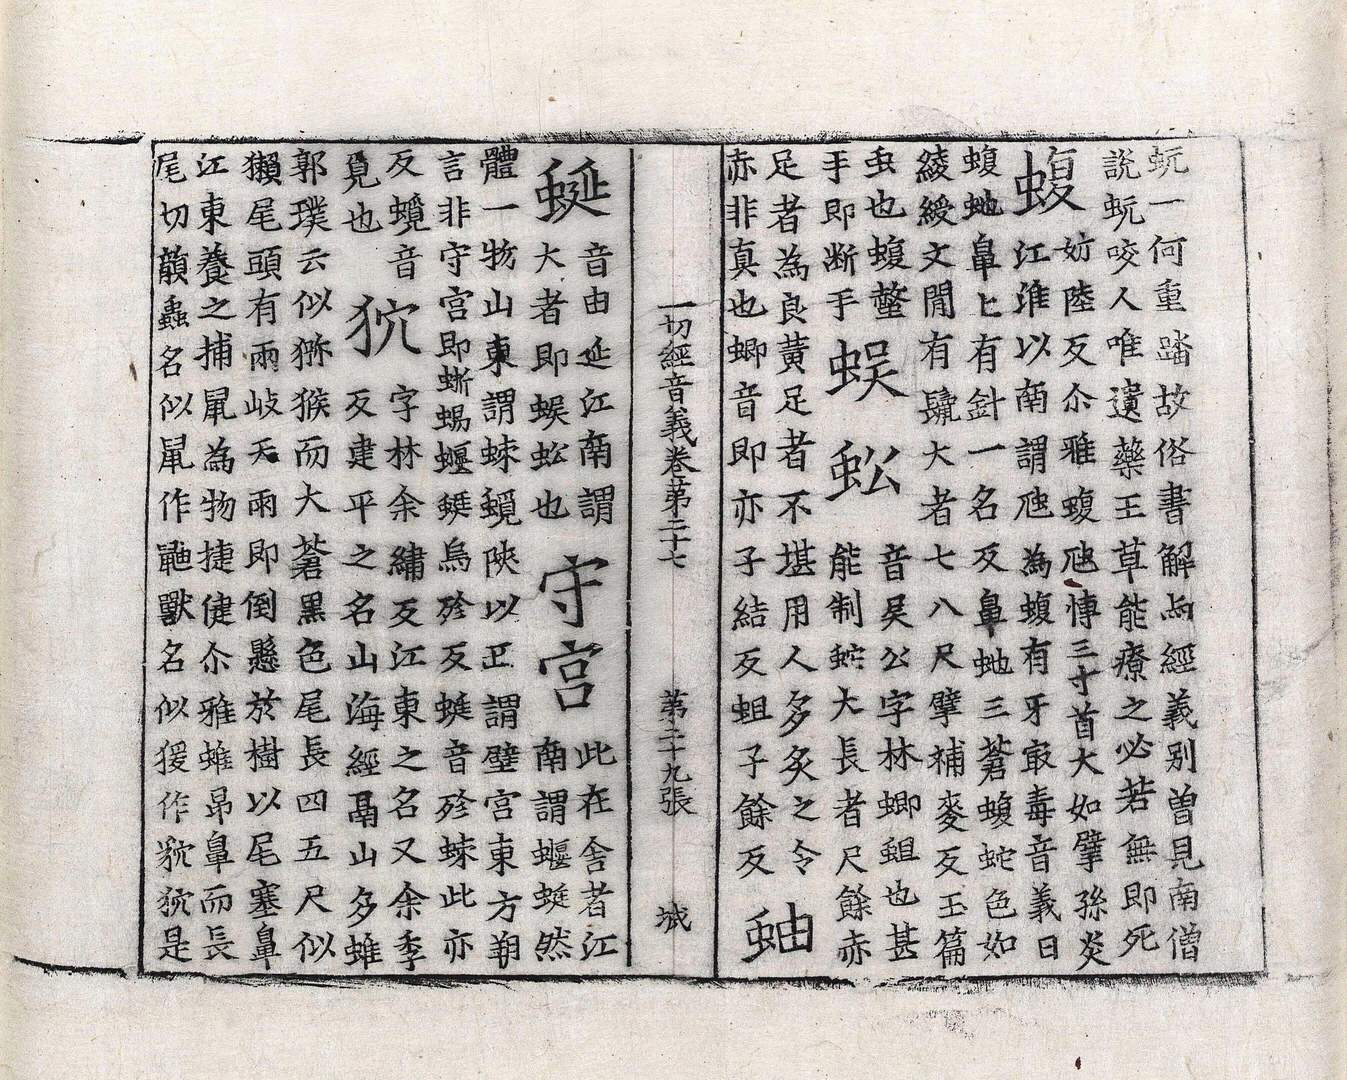 蚖一何重踏故俗書解爲經義別曽見南僧
説蚖咬人唯遺藥王草能療之必若無即死
蝮妨陸反尒雅蝮虺愽三寸首大如擘孫炎
江淮以南謂虺爲蝮有牙㝡毒音義曰
蝮虵鼻上有針一名反鼻虵三蒼蝮蛇色如
綾綬文閒有䰇大者七八尺擘補麥反玉篇
虫也蝮螫蜈蚣音吴公字林蝍蛆也甚
手即斷手能制蛇大長者尺餘赤
足者爲良黄足者不堪用人多炙之令
赤非真也蝍音即亦子結反蛆子餘反蚰
一切經音義卷第二十七 第二十九張 城
蜒音由延江南謂守宫此在舍者江
大者即蜈蚣也南謂蝘蜓然
體一物山東謂蝀蜆陝以西謂壁宫東方朔
言非守宫即蜥蜴蝘蜓烏殄反蜓音殄蝀此亦
反蜆音狖字林余繡反江東之名又余季
覓也反建平之名山海經鬲山多蜼
郭璞云似獼猴而大蒼黒色尾長四五尺似
獺尾頭有兩岐天雨即倒懸於樹以尾塞鼻
江東養之捕鼠爲物捷健尒雅蜼昂鼻而長
尾切蟲名似鼠作獸名似猨作狖是